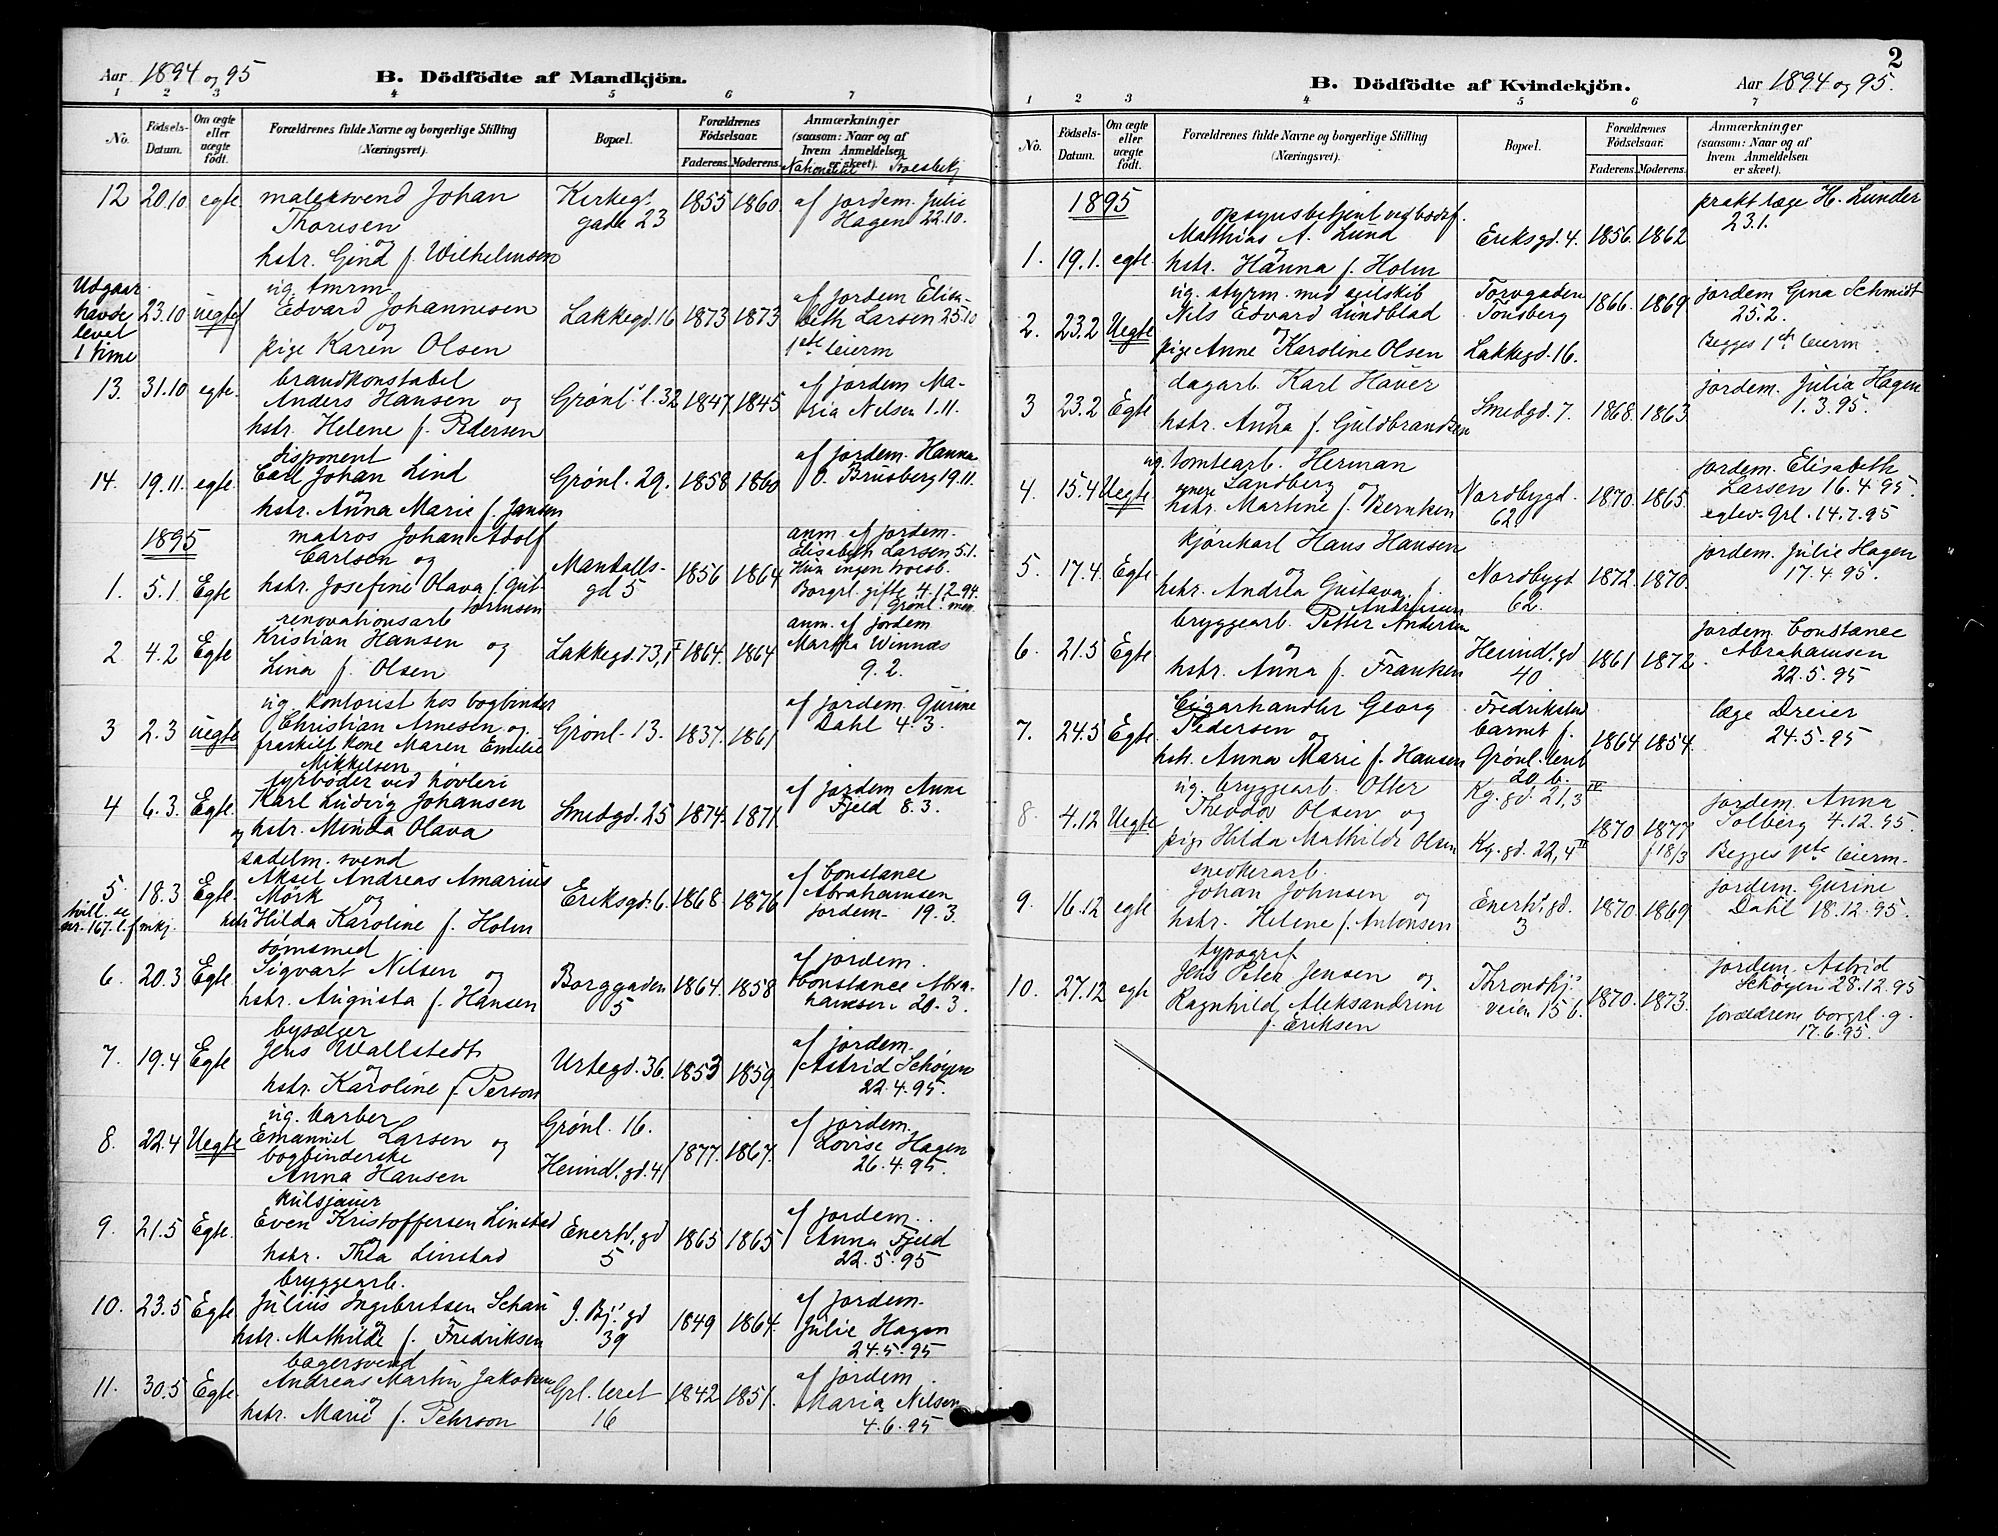 Aar 1894 og 95
B. Dödfödte af Mandkjön.
1 2 3 4 5 6 7
No.
Födsels-Datum.
Om ægte eller uægte födt.
Forældrenes fulde Navne og borgerlige Stilling
(Næringsvei).
Bopæl.
Forældrenes Födselsaar.
Faderens. Moderens.
Anmærkninger
(saasom: Naar og af
hvem Anmeldelsen
er skeet).
12 20.10 egte malersvend Johan
Thorisen
og
hstr. Gind f. Wilhelmsen
Kirkegt.
gade 23
1855 1860
af jordem. Julie
Hagen 22.10.
Udgaar
havde
levet
1 time
23.10 uegte
ug. tmrm.
Edvard Johannesen
og
pige Karen Olsen
Lakkegd. 16 1873 1873
af jordem Elisa-
beth Larsen 25.10
1ste leierm
13. 31.10 egte.
brandkonstabel
Anders Hansen og
hstr. Helene f. Pedersen
Grønl. l. 32 1847. 1845
af jordem Ma-
ria Nilsen 1.11.
14. 19.11. egte
disponent
Carl Johan Lind
og
hstr. Anna Marie f. Jansen
Grønl. 29. 1858 1860
af jordem. Hanna
O. Brusberg 19.11.
1895
1. 5.1. Egte
matros Johan Adolf
Carlsen og
hstr. Josefine Olava f. Gut-
tormsen
Mandalls-
gd 5
1856 1864
anm. af jordem.
Elisabeth Larsen 5.1.
Hun ingen troesb.
Borgrl. gifte 4.12.94.
Grønl. men.
2 4.2 Egte
renovationsarb
Kristian Hansen og
Lina f. Olsen
Lakkegd. 73,1 1864. 1864
anm. af jordem
Martha Winnæs
9.2.
3 2.3 uegte
ug. kontorist hos bogbinder
Christian Arnesen og
fraskilt kone Maren Emelie
Mikkelsen
Grønl. 13. 1837. 1861
af jordem. Gurine
Dahl 4.3.
4 6.3. Egte
fyrbøder ved høvleri
Karl Ludvig Johansen
og hstr. Minda Olava
Smedgd. 25 1874. 1871.
af jordem Anne
Fjeld 8.3.
5 18.3 Egte.
tvill. se
nr. 167. l. f mkj.
sadelm. svend
Aksel Andreas Amarius
Mörk og
hstr Hilda Karoline f. Holm
Eriksgd. 6. 1868 1876
af Constance
Abrahamsen
jordem- 19.3.
6. 20.3 Egte.
sømsmed
Sigvart Nilsen og
hstr. Augusta f. Hansen
Borggaden
5
1864. 1858
af jordem.
Constance Abra-
hamsen 20.3.
7. 19.4 Egte
bysælger
Jens Wallstedt
og
hstr. Karoline f. Person
Urtegd. 36. 1853 1859
af jordem.
Astrid Schøyen
22.4.95.
8. 22.4 Uegte
ug. barber
Emanuel Larsen og
bogbinderske
Anna Hansen
Grønl. 16.
Heimdl. gd. 41
1877. 1867.
af jordem.
Lovise Hagen
26.4.95.
9. 21.5 Egte.
kulsjauer
Even Kristoffersen Linstad
hstr. Thea Linstad
Enerh. gd
5
1865 1865
af jordem.
Anna Fjeld
22.5.95
10. 23.5 Egte
bryggearb.
Julius Ingebritsen Schau
og
hstr. Mathilde f. Fredriksen
J. Bj. gd
39
1849 1864.
af jordem-
Julie Hagen
24.5.95
11. 30.5 Egte.
bagersvend
Andreas Martin Jakobsen
og
hstr. Marie f. Pehrson
Grl. leret
16
1842 1851.
af jordem
Maria Nilsen
4.6.95
2
B. Dödfödte af Kvindekjön.
Aar 1894 og 95.
1 2 3 4 5 6 7
No.
Födsels-Datum.
Om ægte eller uægte födt.
Forældrenes fulde Navne og borgerlige Stilling
(Næringsvei).
Bopæl.
Forældrenes Födselsaar.
Faderens. Moderens.
Anmærkninger
(saasom: Naar og af
hvem Anmeldelsen
er skeet).
1895
1. 19.1. egte
opsynsbetjent ved bodsf.
Matthias A. Lund
og
hstr. Hanna f. Holm
Eriksgd. 4. 1856. 1862
prakt læge H. Lunder
23.1.
2. 23.2 Uegte
ug. styrm. med seilskib
Nils Edvard Lundblad
og
pige Anne Karoline Olsen
Torvgaden
Tønsberg
Lakkegd. 16.
1866. 1869
jordem Gina Schmidt
25.2.
Begges 1ste leierm.
3 23.2 Egte
dagarb. Karl Haver
og
hstr. Anna f. Guldbrandsen
Smedgd. 7. 1868. 1863
jordem. Julia Hagen
1.3.95.
4. 15.4 Uegte
ug. tomtearb. Herman
Landberg og
hstr. Martine f. Berntsen
Nordbygd.
62
1870. 1865.
jordem. Elisabeth
Larsen 16.4.95.
Grl. 14.7.95
5. 17.4. Egte
kjørekarl Hans Hansen
og
hstr. Andrea Gustava f.
Andreasen
Nordbygt
62.
1872. 1870.
jordem. Julie Hagen
17.4.95.
6. 21.5 Egte
bryggearb. Petter Andersen
og
hstr. Anna f. Franken
Heimdl. gd
40
1861 1872
jordem. Constance
Abrahamsen
22.5.95
7. 24.5 Egte.
Cigarhandler Georg
Pedersen og
hstr. Anna Marie f. Hansen
Fredrikstad
barnet f.
Grønl. leret
20 b.
1864 1854.
læge Dreier
24.5.95
8. 4.12 Uegte
ug. bryggearb. Otter
Theodor Olsen og
pige Hilda Mathilde Olsen
Kg. gd. 21,3 IV
Kg. gd. 22,4 II
1870 1877
f 18/3
jordem. Anna
Solberg 4.12.95.
Begges 1ste leierm.
9. 16.12 egte
snedkerarb.
Johan Johnsen og
hstr. Helene f. Antonsen
Enerh. gd.
3
1870. 1869
jordem. Gurine
Dahl 18.12.95.
10. 27.12 egte
typograf
Jens Peter Jensen og
Ragnhild Aleksandrine
f. Eriksen
Throndhj.
veien 15 b.
1870. 1873.
jordem. Astrid
Schøyen 28.12.95
forældrene borgrl. g.
17.6.95.